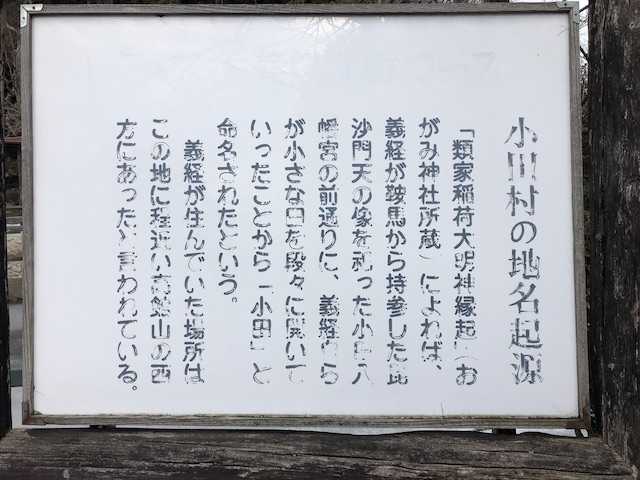 小田村の地名起源
「類家稲荷大明神縁起」(お
がみ神社所蔵)によれば、
義経が鞍馬から持参した毘
沙門天の像を祀った小田八
幡宮の前通りに、義経自ら
が小さな田を段々に開いて
いったことから「小田」と
命名されたという。
義経が住んでいた場所は
この地に程近い高館山の西
方にあったと言われている。